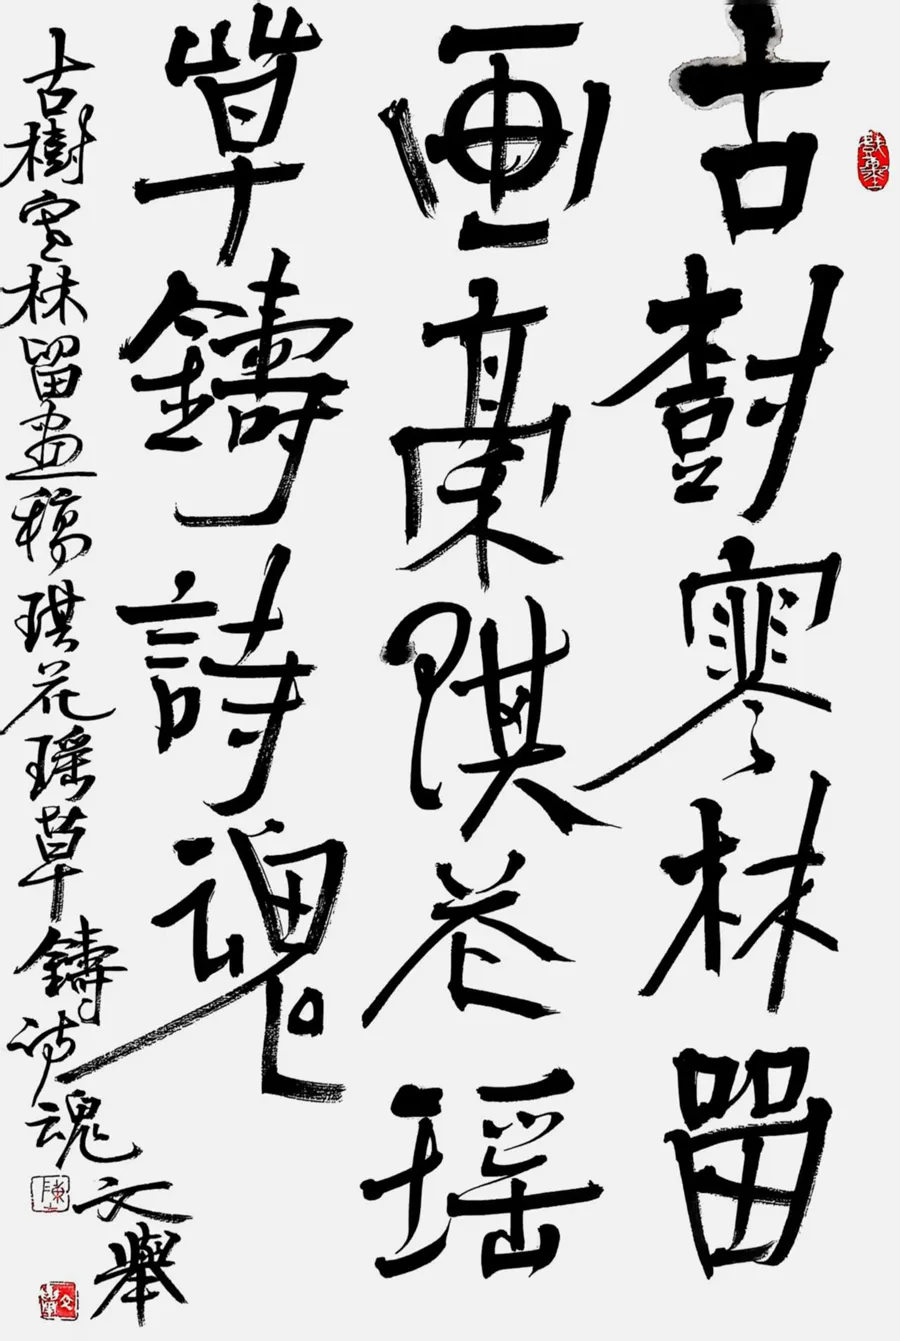 古樹寒林留
画稾琪花瑶
草鑄詩魂
古樹寒林留畫稿琪花瑶草鑄詩魂
文舉